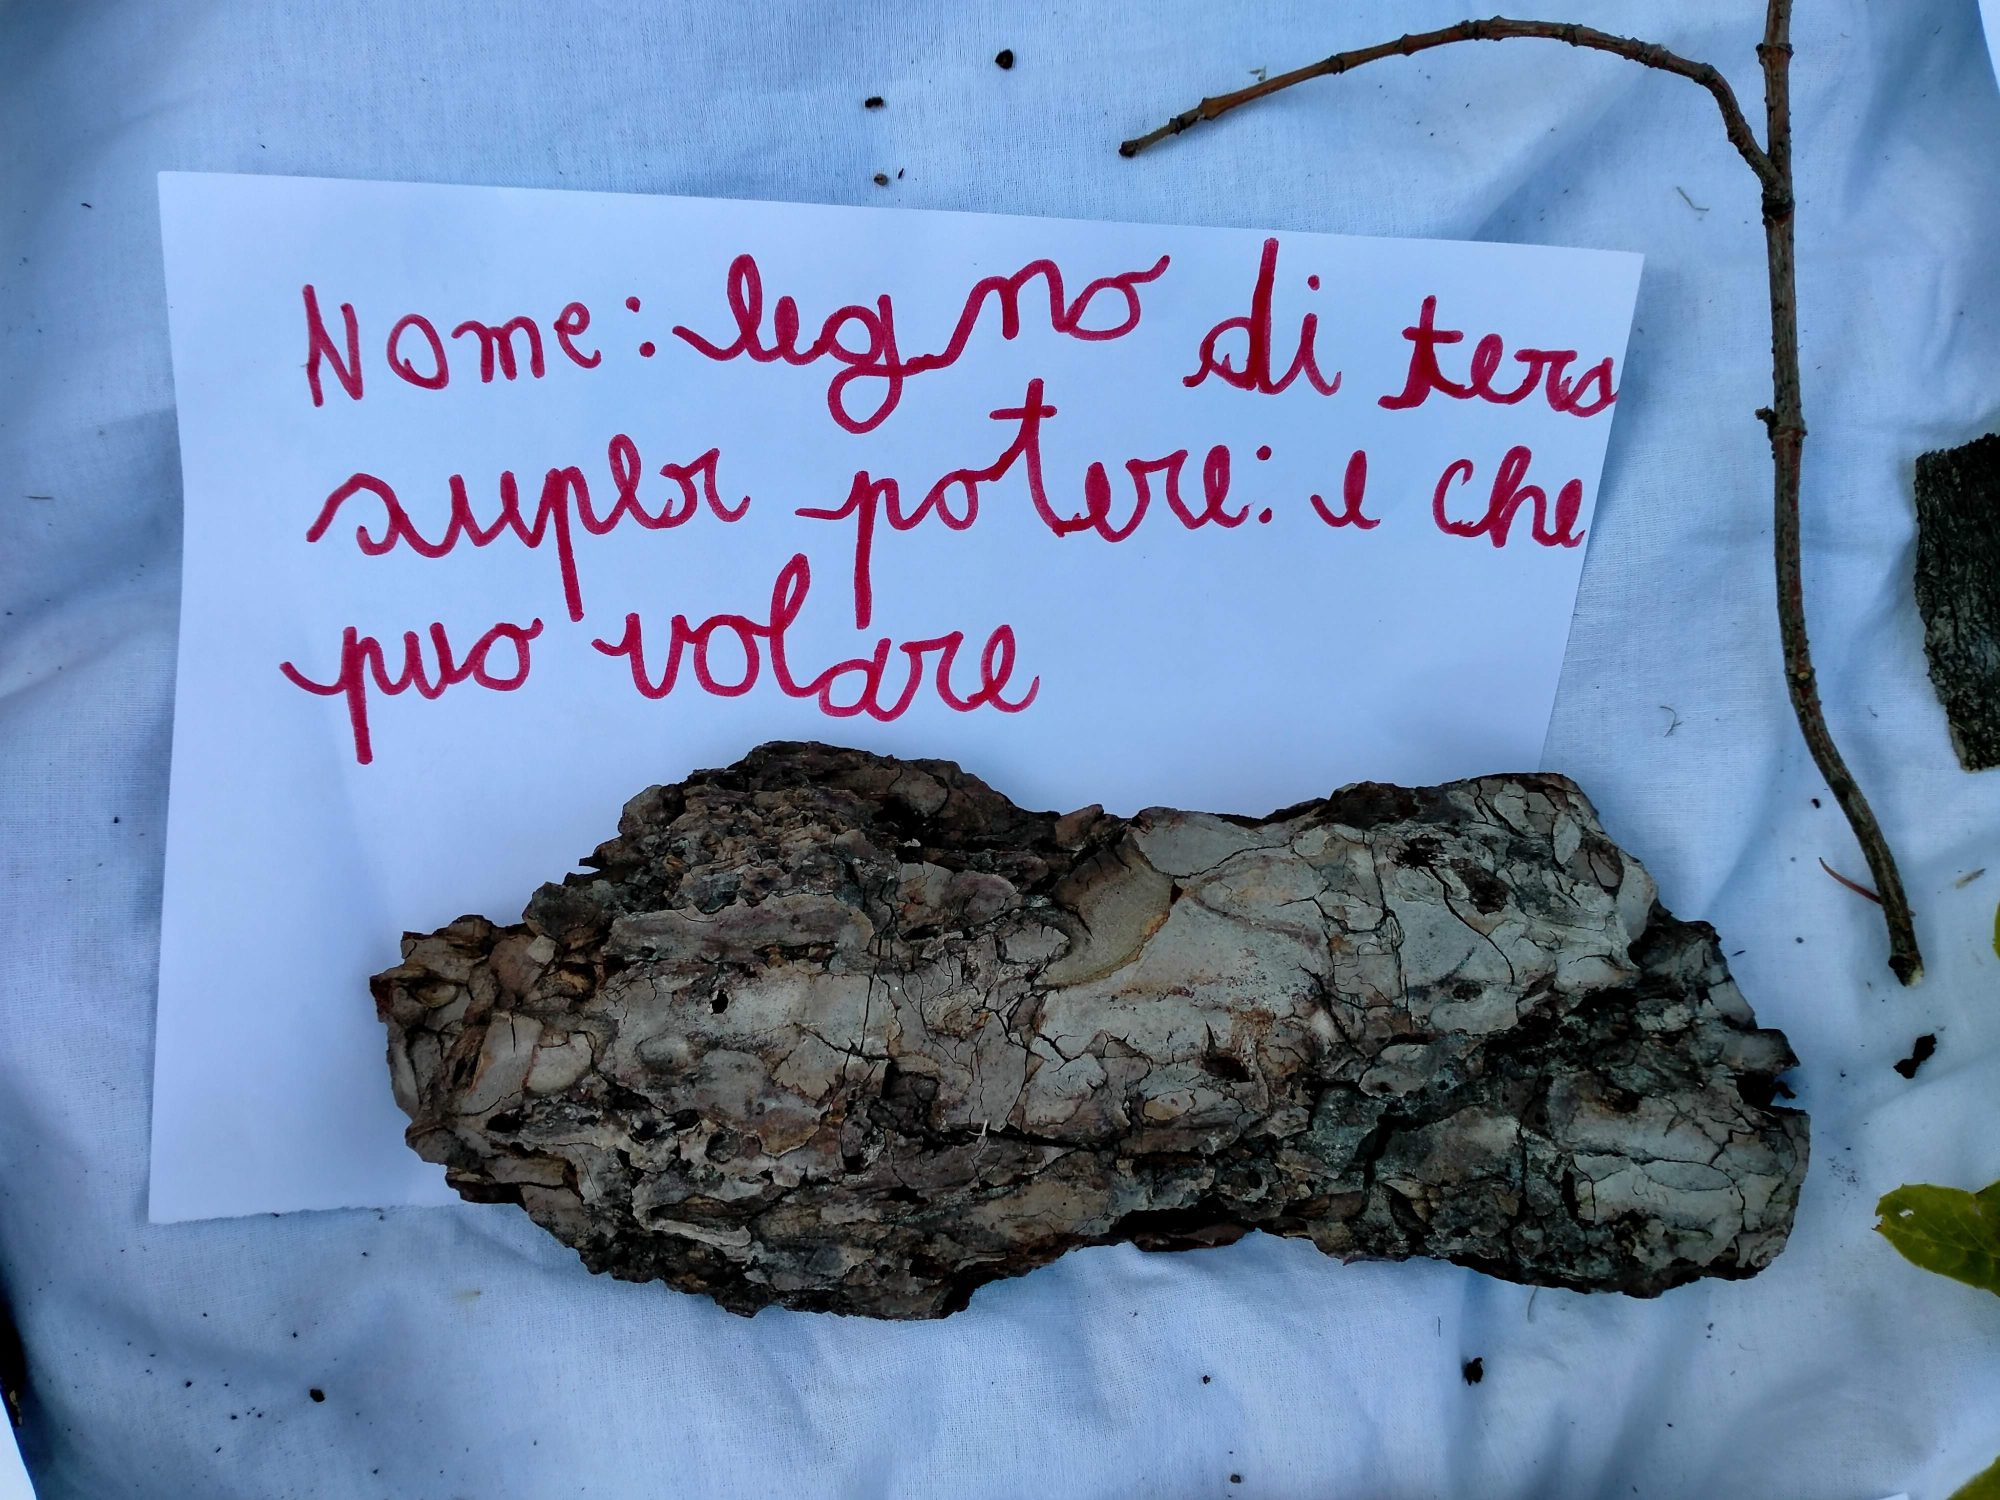 Nome: legno di tera
super potere: e che
puo volare